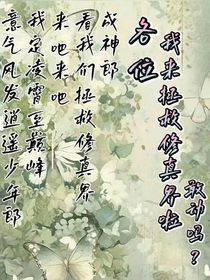 各位
我来拯救修真界啦
成神郎
看我们拯救修真界
来吧来吧
我定凌霄至巅峰
意气风发逍遥少年郎